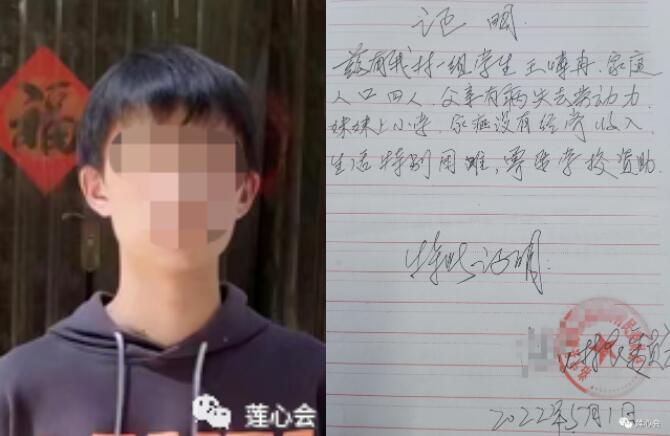 福
莲心会
证明
兹有我村一组学生王博冉、家庭
人口四人、父亲有病失去劳动力
妹妹上小学、家庭没有经常收入
生活特别困难、需要学校资助
特此证明
2022年5月1日
莲心会